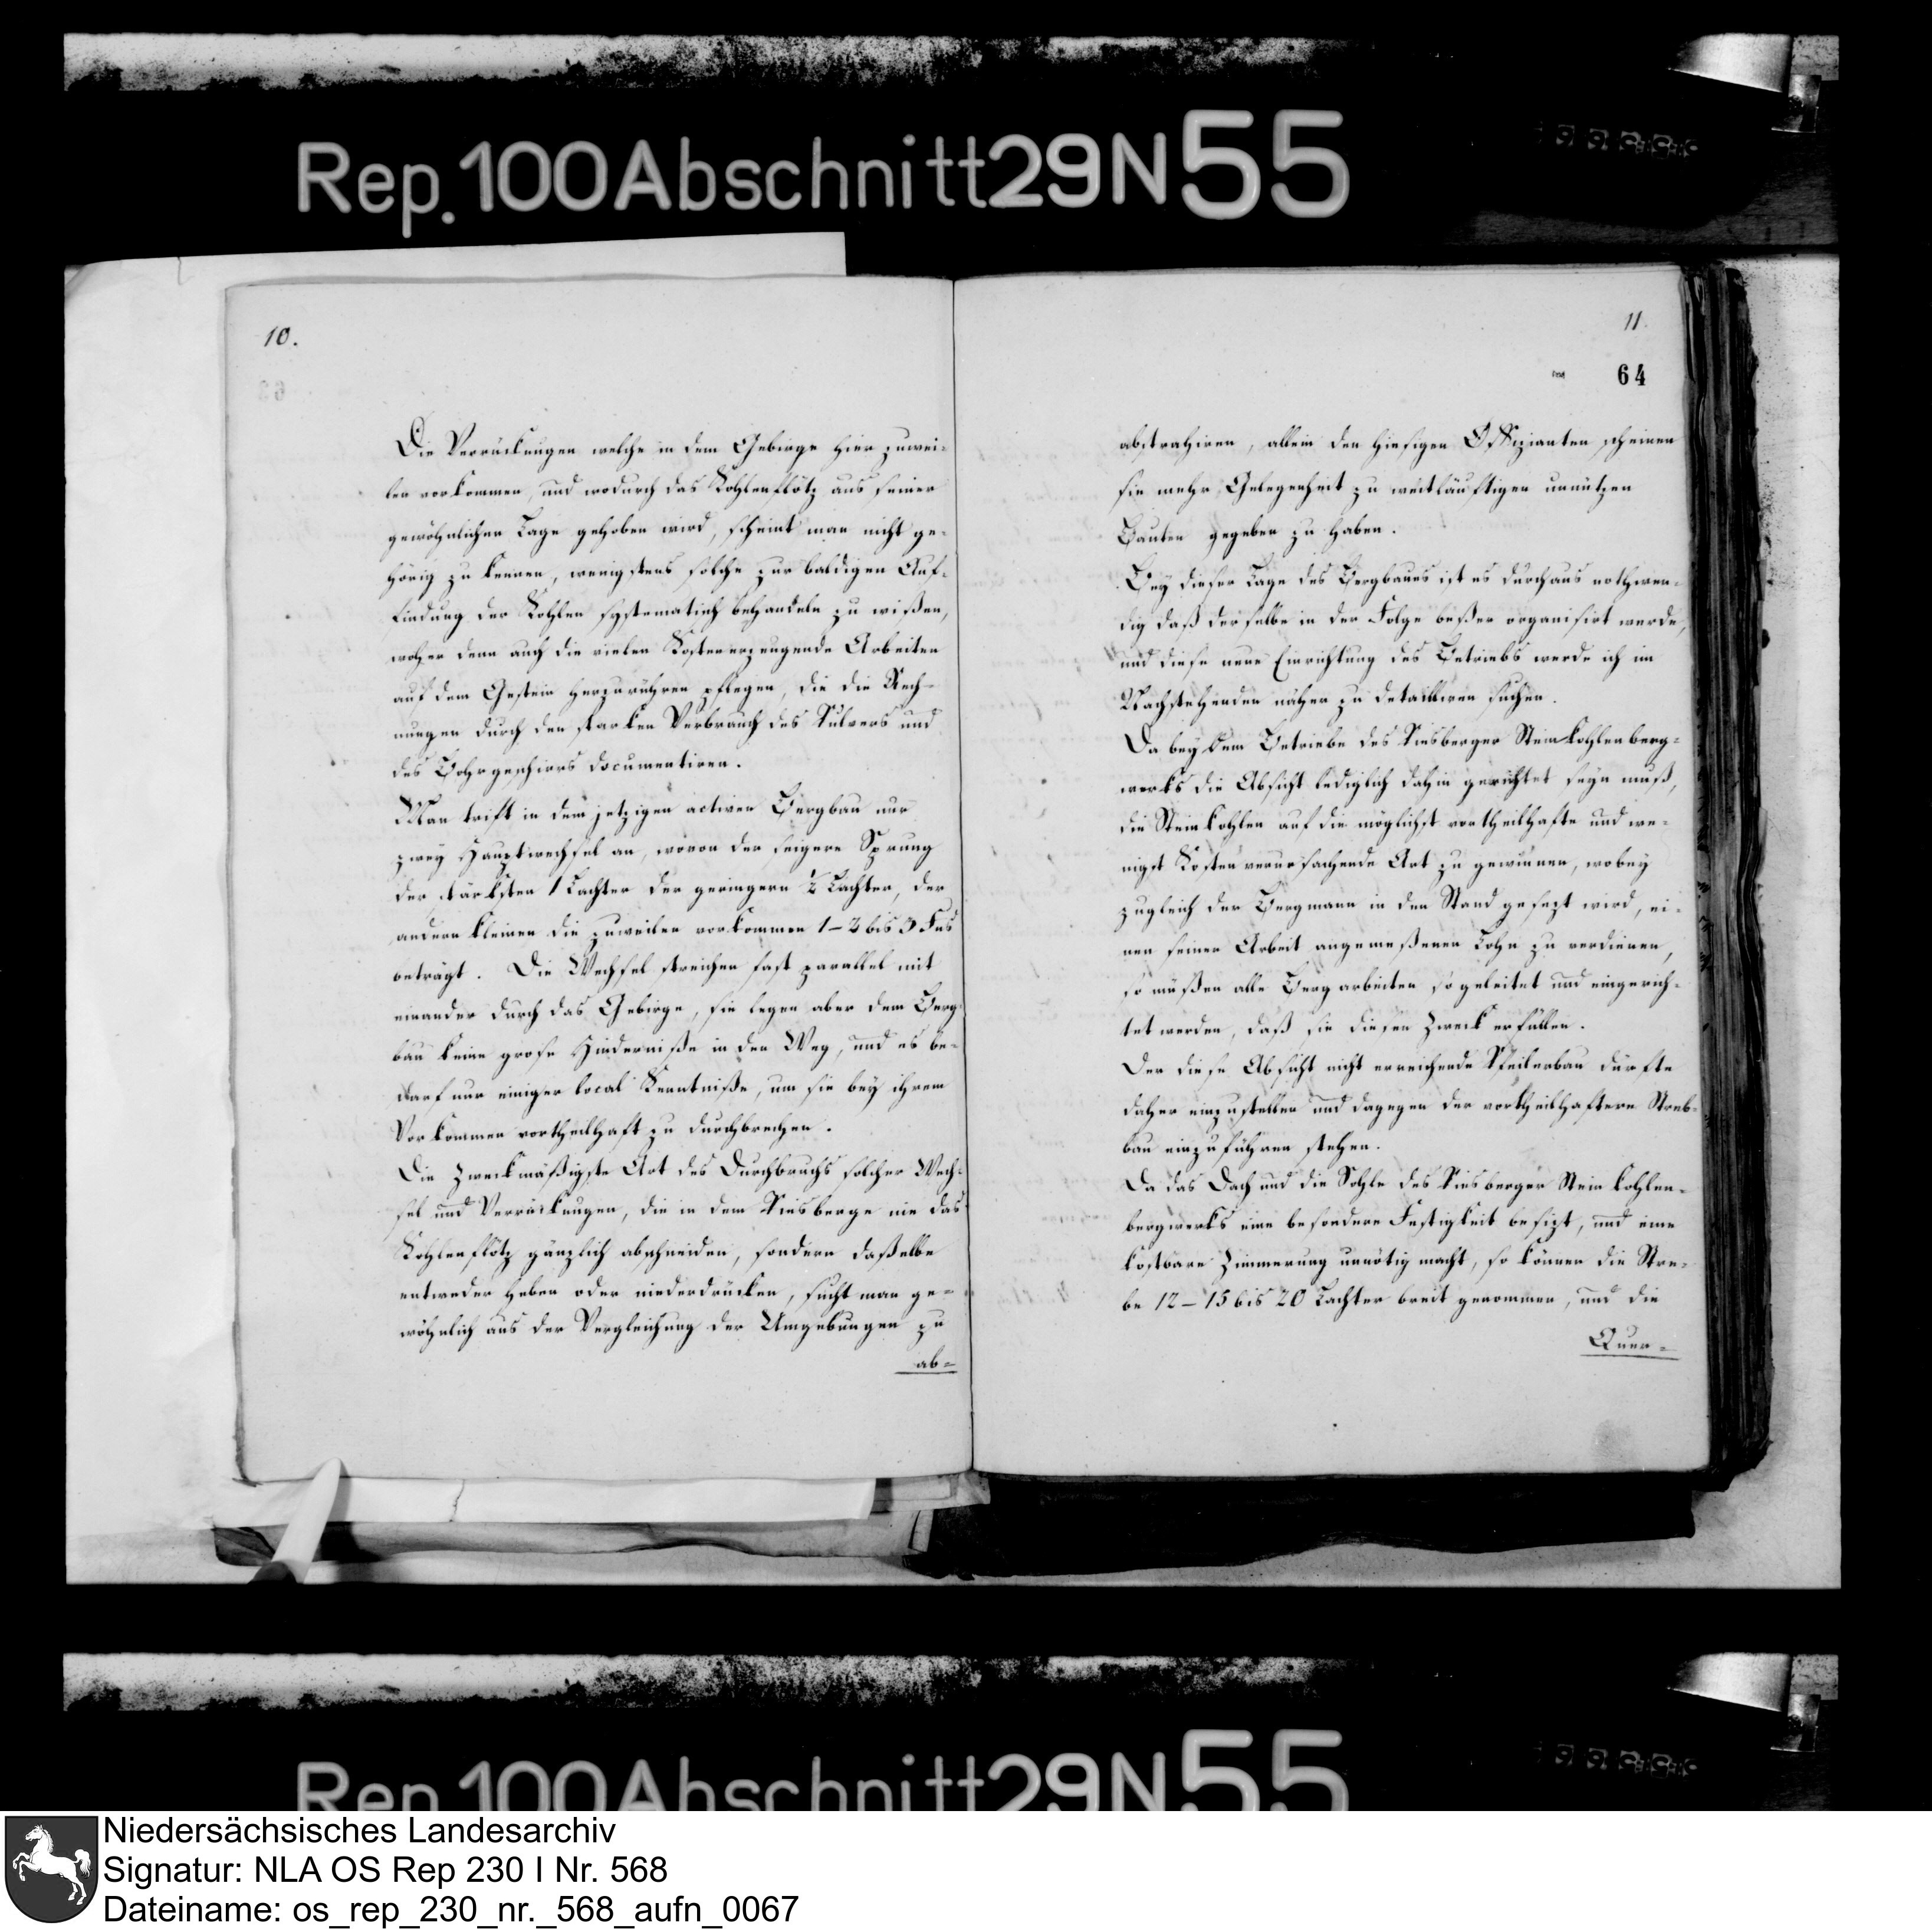 Rep. 100 Abschnitt 29 N 55
10.
Die Verrückungen welche in dem Gebirge hier zuwei-
len vorkommen, und wodurch das Kohlenflötz aus seiner
gewöhnlichen Lage gehoben wird, scheint man nicht ge-
hörig zu kennen, wenigstens solche zur baldigen Auf-
findung der Kohlen systematisch behandeln zu wißen,
woher denn auch die vielen Kostenerzeugende Arbeiten
auf dem Gestein herzurühren pflegen, die die Rech-
nungen durch den starken Verbrauch des Pulvers und
des Bohrgeschirrs documentiren.
Man trift in dem jetzigen activen Bergbau nur
zwey Hauptwechsel an, wovon der seigere Sprung
der stärksten 1 Lachter der geringern ½ Lachter, der
andern kleinen die zuweilen vorkommen 1–2 bis 3 Fus
beträgt. Die Wechsel streichen fast parallel mit
einander durch das Gebirge, sie legen aber dem Berg-
bau keine grose Hinderniße in den Weg, und es be-
darf nur einiger local Kenntniße, um sie bey ihrem
Vorkommen vortheilhaft zu durchbrechen.
Die Zweckmäßigste Art des Durchbruchs solcher Wech-
sel und Verrückungen, die in dem Piesberge nie das
Kohlenflötz gänzlich abschneiden, sondern daßelbe
entweder heben oder niederdrücken, sucht man ge-
wöhnlich aus der Vergleichung der Umgebungen zu
ab-
11.
64
abstrahiren, allein den hiesigen Offizianten scheinen
sie mehr Gelegenheit zu weitläuftigen unnützen
Bauten gegeben zu haben.
Bey dieser Lage des Bergbaues ist es durchaus nothwen-
dig daß derselbe in der Folge beßer organisirt werde,
und diese neue Einrichtung des Betriebs werde ich im
Nachstehenden näher zu detailliren suchen.
Da bey dem Betriebe des Piesberger Steinkohlenberg-
werks die Absicht lediglich dahin gerichtet seyn muß,
die Steinkohlen auf die möglichst vortheilhafte und we-
nigst Kosten verursachende Art zu gewinnen, wobey
zugleich der Bergmann in den Stand gesezt wird, ei-
nen seiner Arbeit angemeßenen Lohn zu verdienen,
so müßen alle Bergarbeiten so geleitet und eingerich-
tet werden, daß sie diesen Zweck erfüllen.
Der diese Absicht nicht erreichende Pfeilerbau dürfte
daher einzustellen und dagegen der vortheilhaftere Streb-
bau einzuführen stehen.
Da das Dach und die Sohle des Piesberger Steinkohlen-
bergwerks eine besondere Festigkeit besizt, und eine
kostbare Zimmerung unnötig macht, so können die Stre-
be 12–15 bis 20 Lachter breit genommen, und die
Quer-
Rep. 100 Abschnitt 29 N 55
Niedersächsisches Landesarchiv
Signatur: NLA OS Rep 230 I Nr. 568
Dateiname: os_rep_230_nr._568_aufn_0067